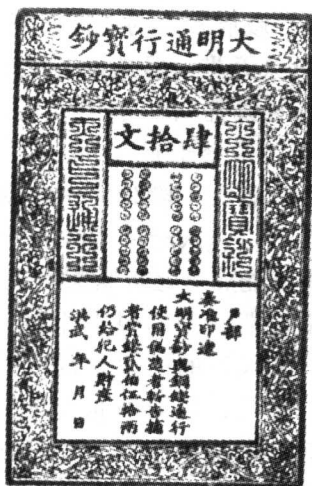 大明通行寶鈔
肆拾文
大明寶鈔
天下通行
戶部
奏准印造
大明寶鈔與銅錢通行
使用偽造者斬告捕
者賞銀貳伯伍拾兩
仍給犯人財產
洪武 年 月 日